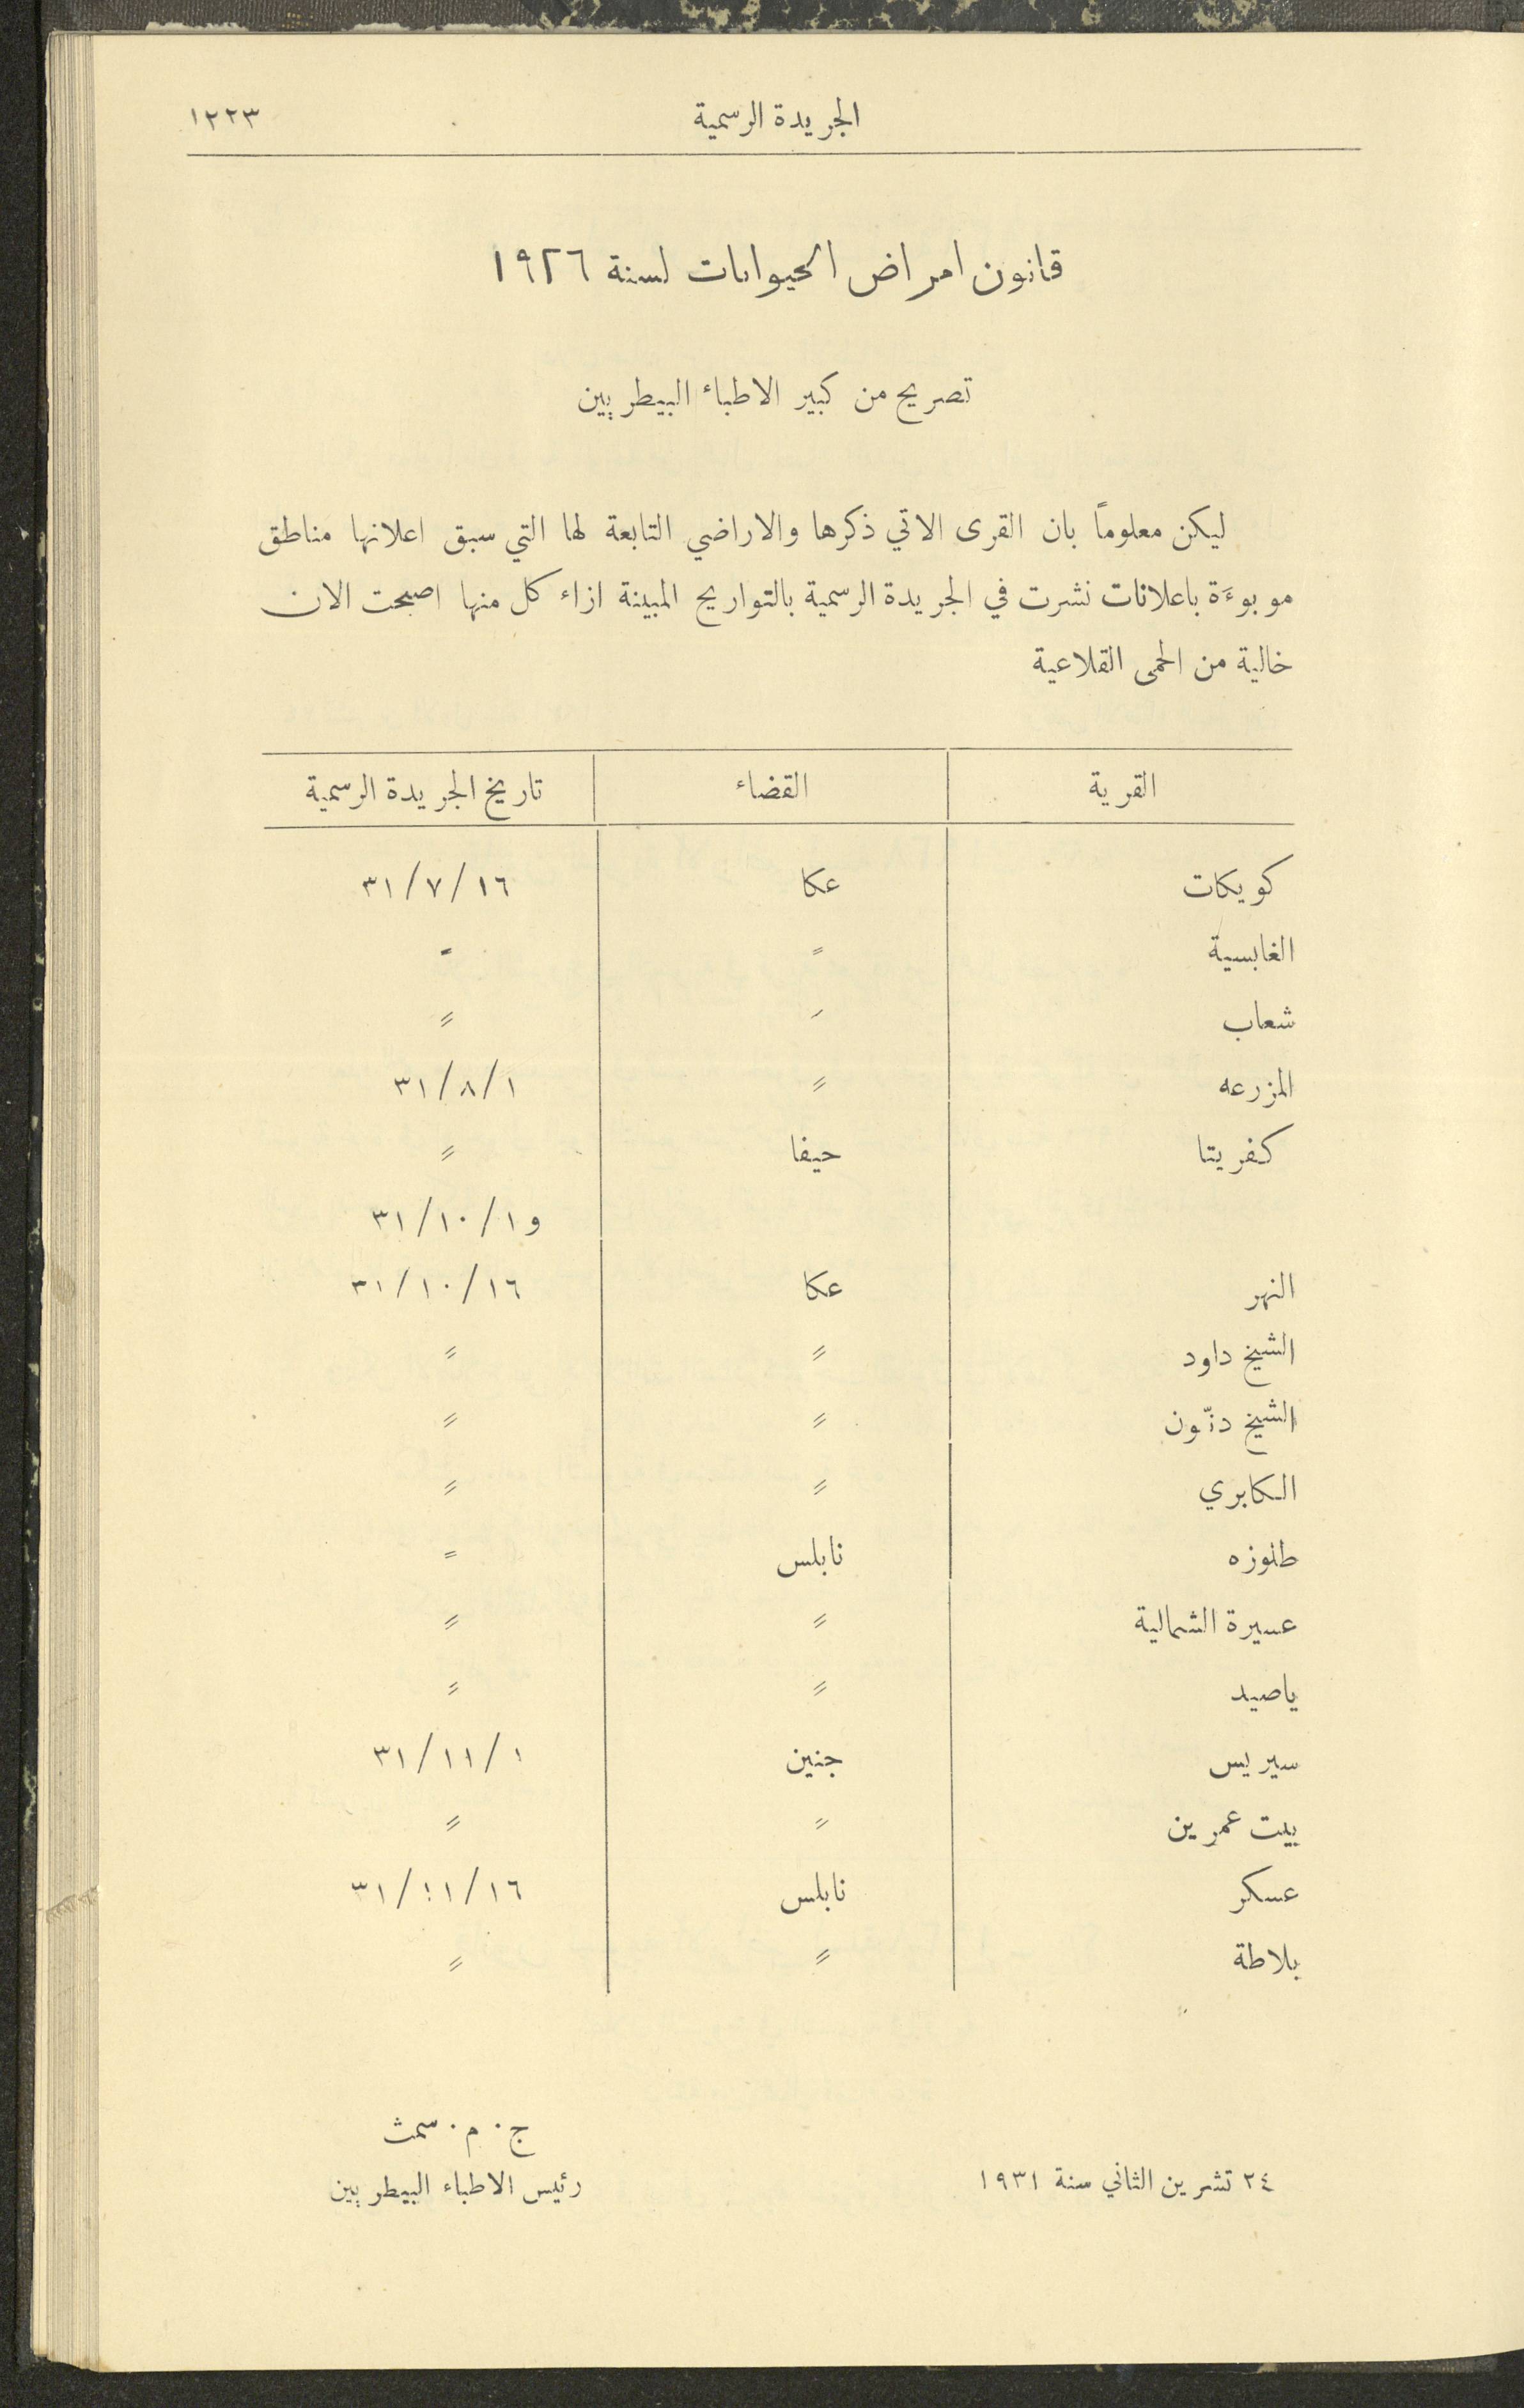 الجريدة الرسمية ١٢٢٣
قانون امراض الحيوانات لسنة ١٩٢٦
تصريح من كبير الاطباء البيطريين
ليكن معلوماً بان القرى الاتي ذكرها والاراضي التابعة لها التي سبق اعلانها مناطق
موبوءَة باعلانات نشرت في الجريدة الرسمية بالتواريخ المبينة ازاء كل منها اصبحت الان
خالية من الحمى القلاعية
القرية القضاء تاريخ الجريدة الرسمية
كويكات عكا ٣١/٧/١٦
الغابسية = -
شعاب ״ ״
المزرعه ״ ٣١/٨/١
كفريتا حيفا ״
و ٣١/١٠/١
النهر عكا ٣١/١٠/١٦
الشيخ داود ״ ״
الشيخ دنّون ״ ״
الكابري ״ ״
طلوزه نابلس =
عسيرة الشمالية ״ ״
ياصيد ״ ״
سيريس جنين ٣١/١١/١
بيت عمرين ״ ״
عسكر نابلس ٣١/١١/١٦
بلاطة ״ ״
ج. م. سمث
٢٤ تشرين الثاني سنة ١٩٣١ رئيس الاطباء البيطريين